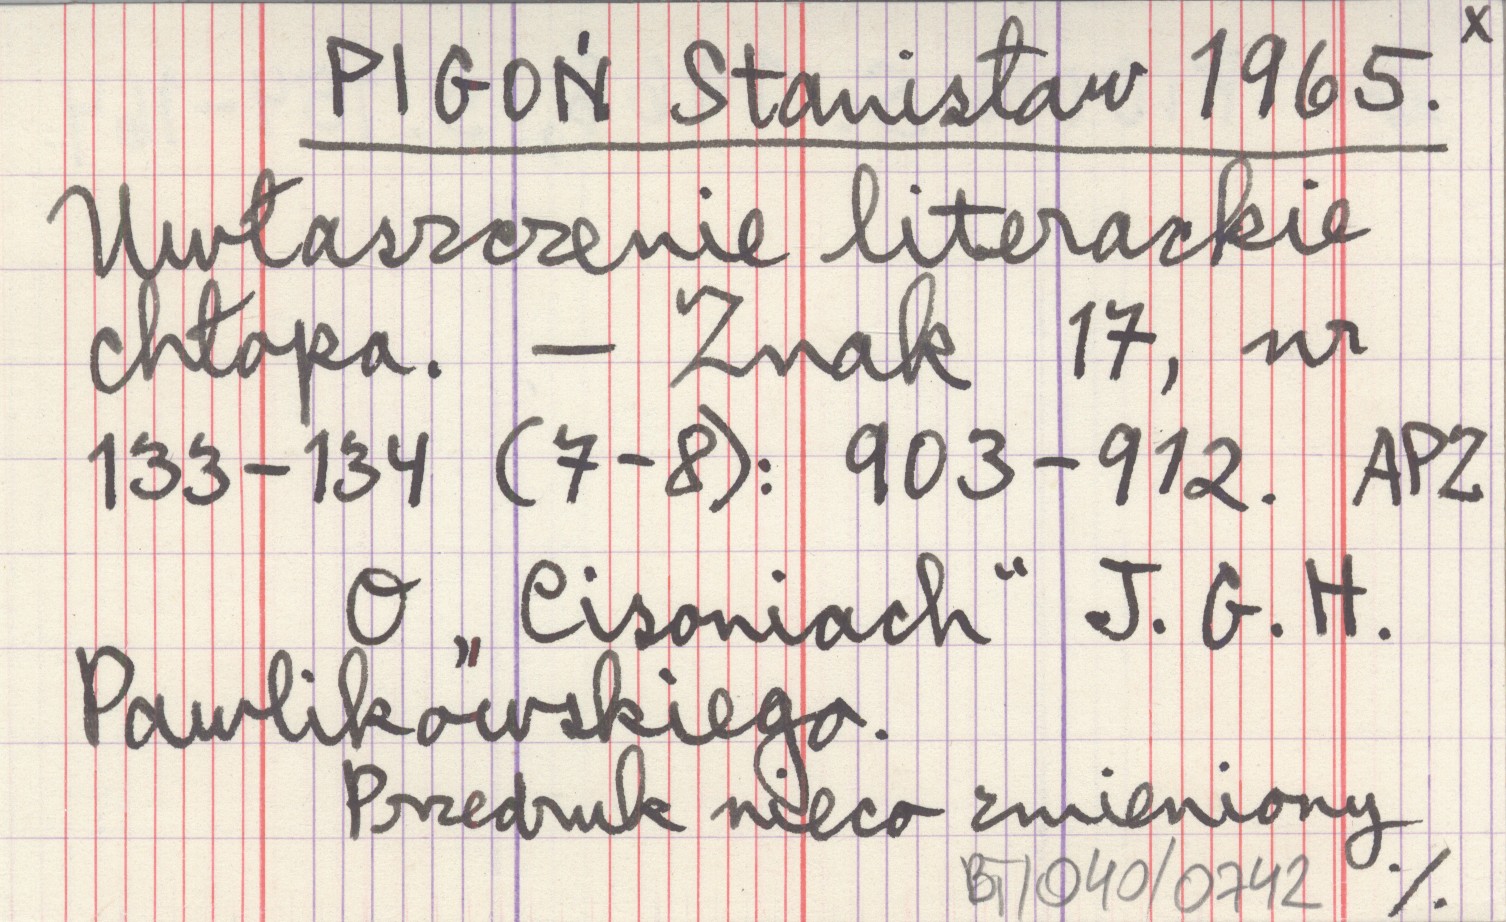 x
PIGOŃ Stanisław 1965.
Uwłaszczenie literackie
chłopa. — Znak 17, nr
133-134 (7-8): 903-912. APZ
O „Cisoniach" J. G. H.
Pawlikowskiego.
Przedruk nieco zmieniony
BT/040/0742 ./.